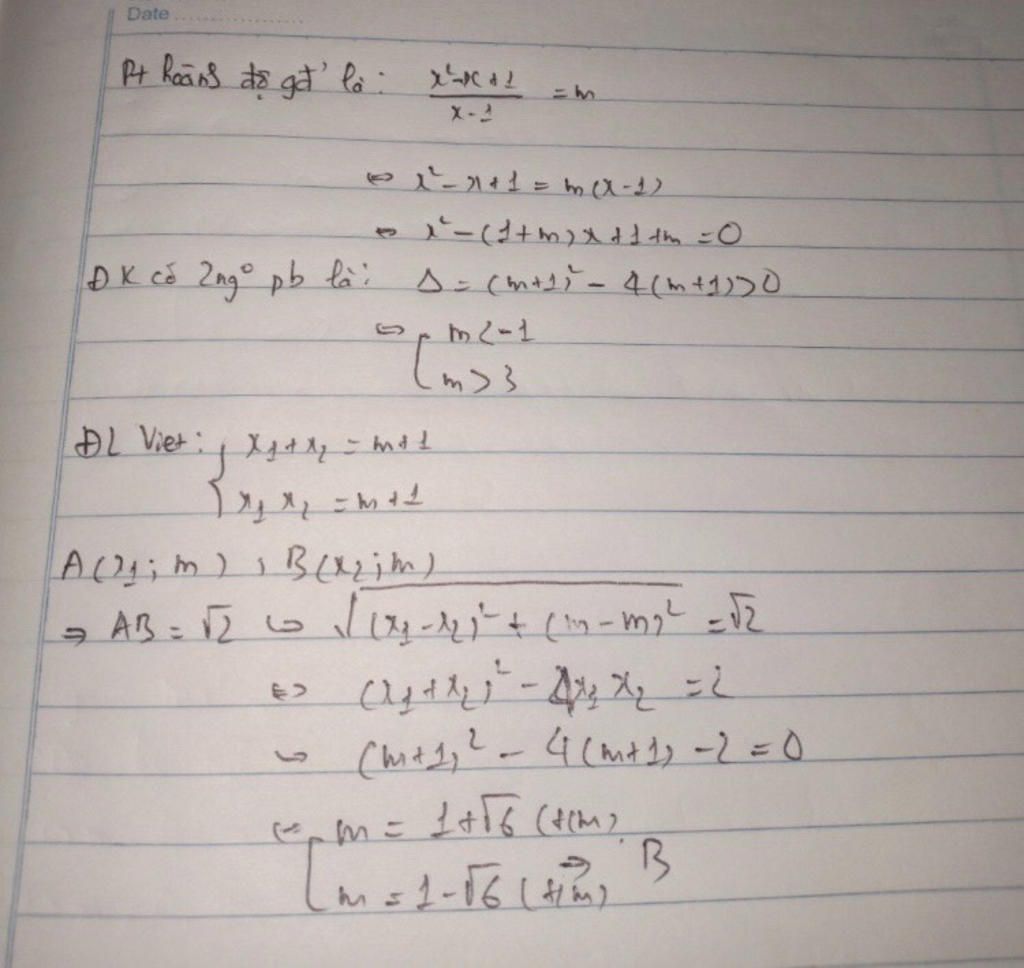 Date
Pt hoành độ gđ' là: \frac{x²-x+1}{x-1} = m
⇔ x²-x+1 = m(x-1)
⇔ x²-(1+m)x+1+m=0
ĐK có 2ng° pb là: Δ = (m+1)² - 4(m+1)>0
⇔ [ m<-1
m>3
ĐL Viet: { x₁+x₂ = m+1
x₁x₂ = m+1
A(x₁;m), B(x₂;m)
⇒ AB = √2 ⇔ √((x₁-x₂)²+(m-m)²) = √2
⇔ (x₁+x₂)² - 4x₁x₂ = 2
⇔ (m+1)² - 4(m+1) - 2 = 0
⇔ [ m = 1+√6 (t/m)
m = 1-√6 (t/m) ⇒ B